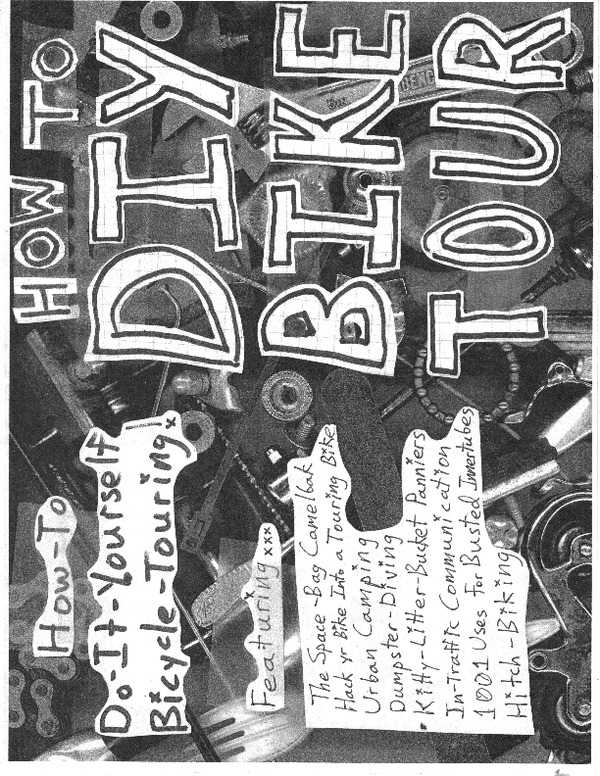 HOW TO
DIY
BIKE
TOUR
How-To
Do-It-Yourself
Bicycle-Touring!
Featuring xxx
The Space-Bag Camelbak
Hack yr Bike Into a Touring Bike
Urban Camping
Dumpster-Diving
Kitty-Litter-Bucket Panniers
In-Traffic Communication
1001 Uses For Busted Innertubes
Hitch-Biking